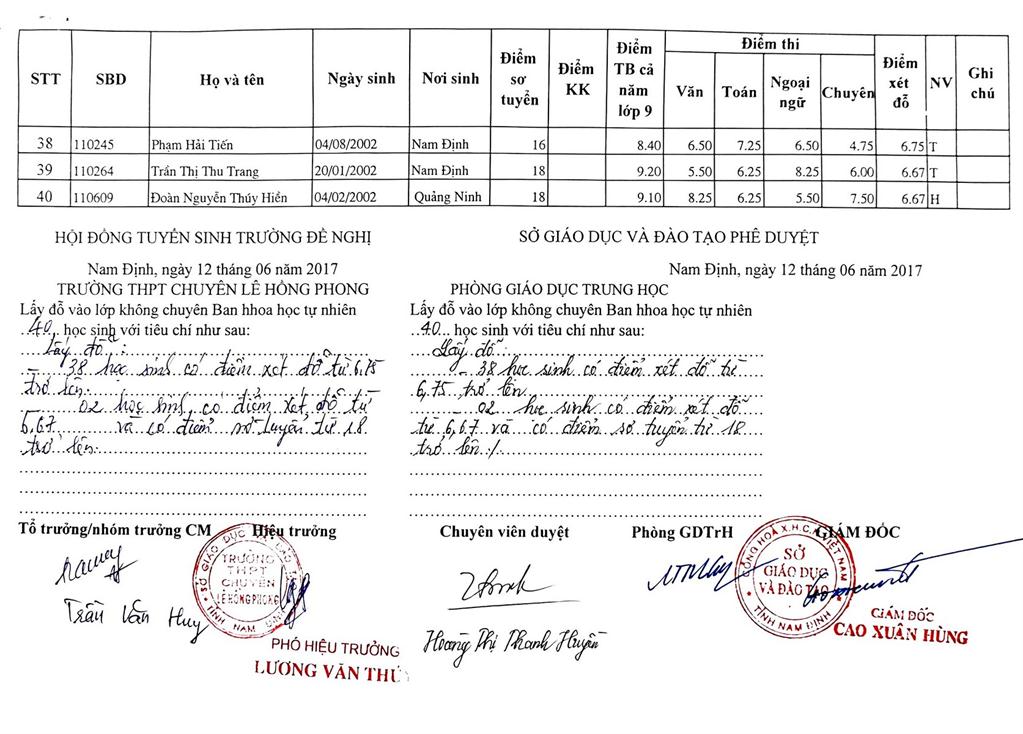 STT SBD Họ và tên Ngày sinh Nơi sinh Điểm sơ tuyển Điểm KK Điểm TB cả năm lớp 9 Điểm thi Văn Toán Ngoại ngữ Chuyên Điểm xét đỗ NV Ghi chú
38 110245 Phạm Hải Tiến 04/08/2002 Nam Định 16 8.40 6.50 7.25 6.50 4.75 6.75 T
39 110264 Trần Thị Thu Trang 20/01/2002 Nam Định 18 9.20 5.50 6.25 8.25 6.00 6.67 T
40 110609 Đoàn Nguyễn Thúy Hiền 04/02/2002 Quảng Ninh 18 9.10 8.25 6.25 5.50 7.50 6.67 H
HỘI ĐỒNG TUYỂN SINH TRƯỜNG ĐỀ NGHỊ
Nam Định, ngày 12 tháng 06 năm 2017
TRƯỜNG THPT CHUYÊN LÊ HỒNG PHONG
Lấy đỗ vào lớp không chuyên Ban hhoa học tự nhiên
..40... học sinh với tiêu chí như sau:
Lấy đỗ :
- 38 học sinh có điểm xét đỗ từ 6,75
trở lên.
- 02 học sinh có điểm xét đỗ từ
6,67 và có điểm sơ tuyển từ 18
trở lên.
Tổ trưởng/nhóm trưởng CM Hiệu trưởng
Trần Văn Huy
SỞ GIÁO DỤC VÀ ĐÀO TẠO
TRƯỜNG
THPT
CHUYÊN
LÊ HỒNG PHONG
TỈNH NAM ĐỊNH
PHÓ HIỆU TRƯỞNG
LƯƠNG VĂN THỦY
SỞ GIÁO DỤC VÀ ĐÀO TẠO PHÊ DUYỆT
Nam Định, ngày 12 tháng 06 năm 2017
PHÒNG GIÁO DỤC TRUNG HỌC
Lấy đỗ vào lớp không chuyên Ban hhoa học tự nhiên
..40... học sinh với tiêu chí như sau:
Lấy đỗ :
- 38 học sinh có điểm xét đỗ từ
6,75 trở lên
- 02 học sinh có điểm xét đỗ
từ 6,67 và có điểm sơ tuyển từ 18
trở lên ./.
Chuyên viên duyệt Phòng GDTrH GIÁM ĐỐC
Hoàng Thị Thanh Huyền
CỘNG HOÀ X.H.C.N VIỆT NAM
SỞ
GIÁO DỤC
VÀ ĐÀO TẠO
TỈNH NAM ĐỊNH
GIÁM ĐỐC
CAO XUÂN HÙNG